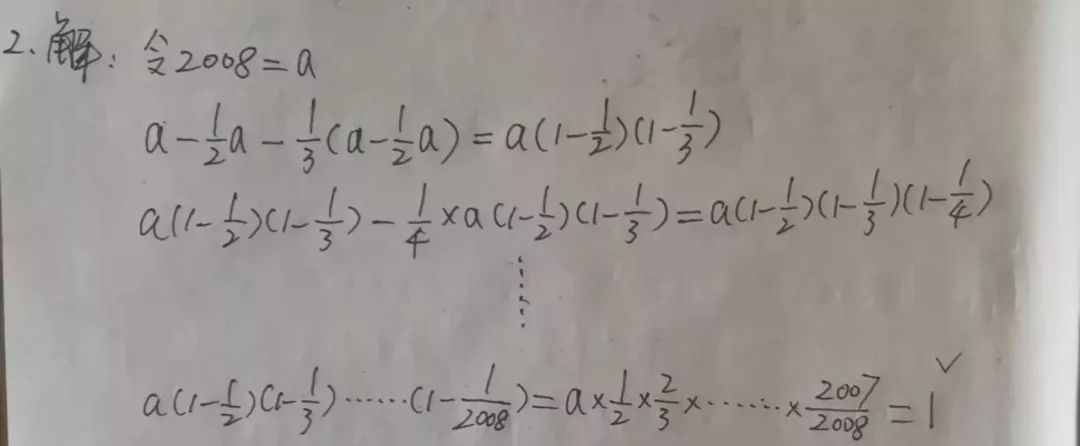 2、解：令2008=a
a-\frac{1}{2}a-\frac{1}{3}(a-\frac{1}{2}a)=a(1-\frac{1}{2})(1-\frac{1}{3})
a(1-\frac{1}{2})(1-\frac{1}{3})-\frac{1}{4}×a(1-\frac{1}{2})(1-\frac{1}{3})=a(1-\frac{1}{2})(1-\frac{1}{3})(1-\frac{1}{4})
⋮
a(1-\frac{1}{2})(1-\frac{1}{3})……(1-\frac{1}{2008})=a×\frac{1}{2}×\frac{2}{3}×……×\frac{2007}{2008}=1✓